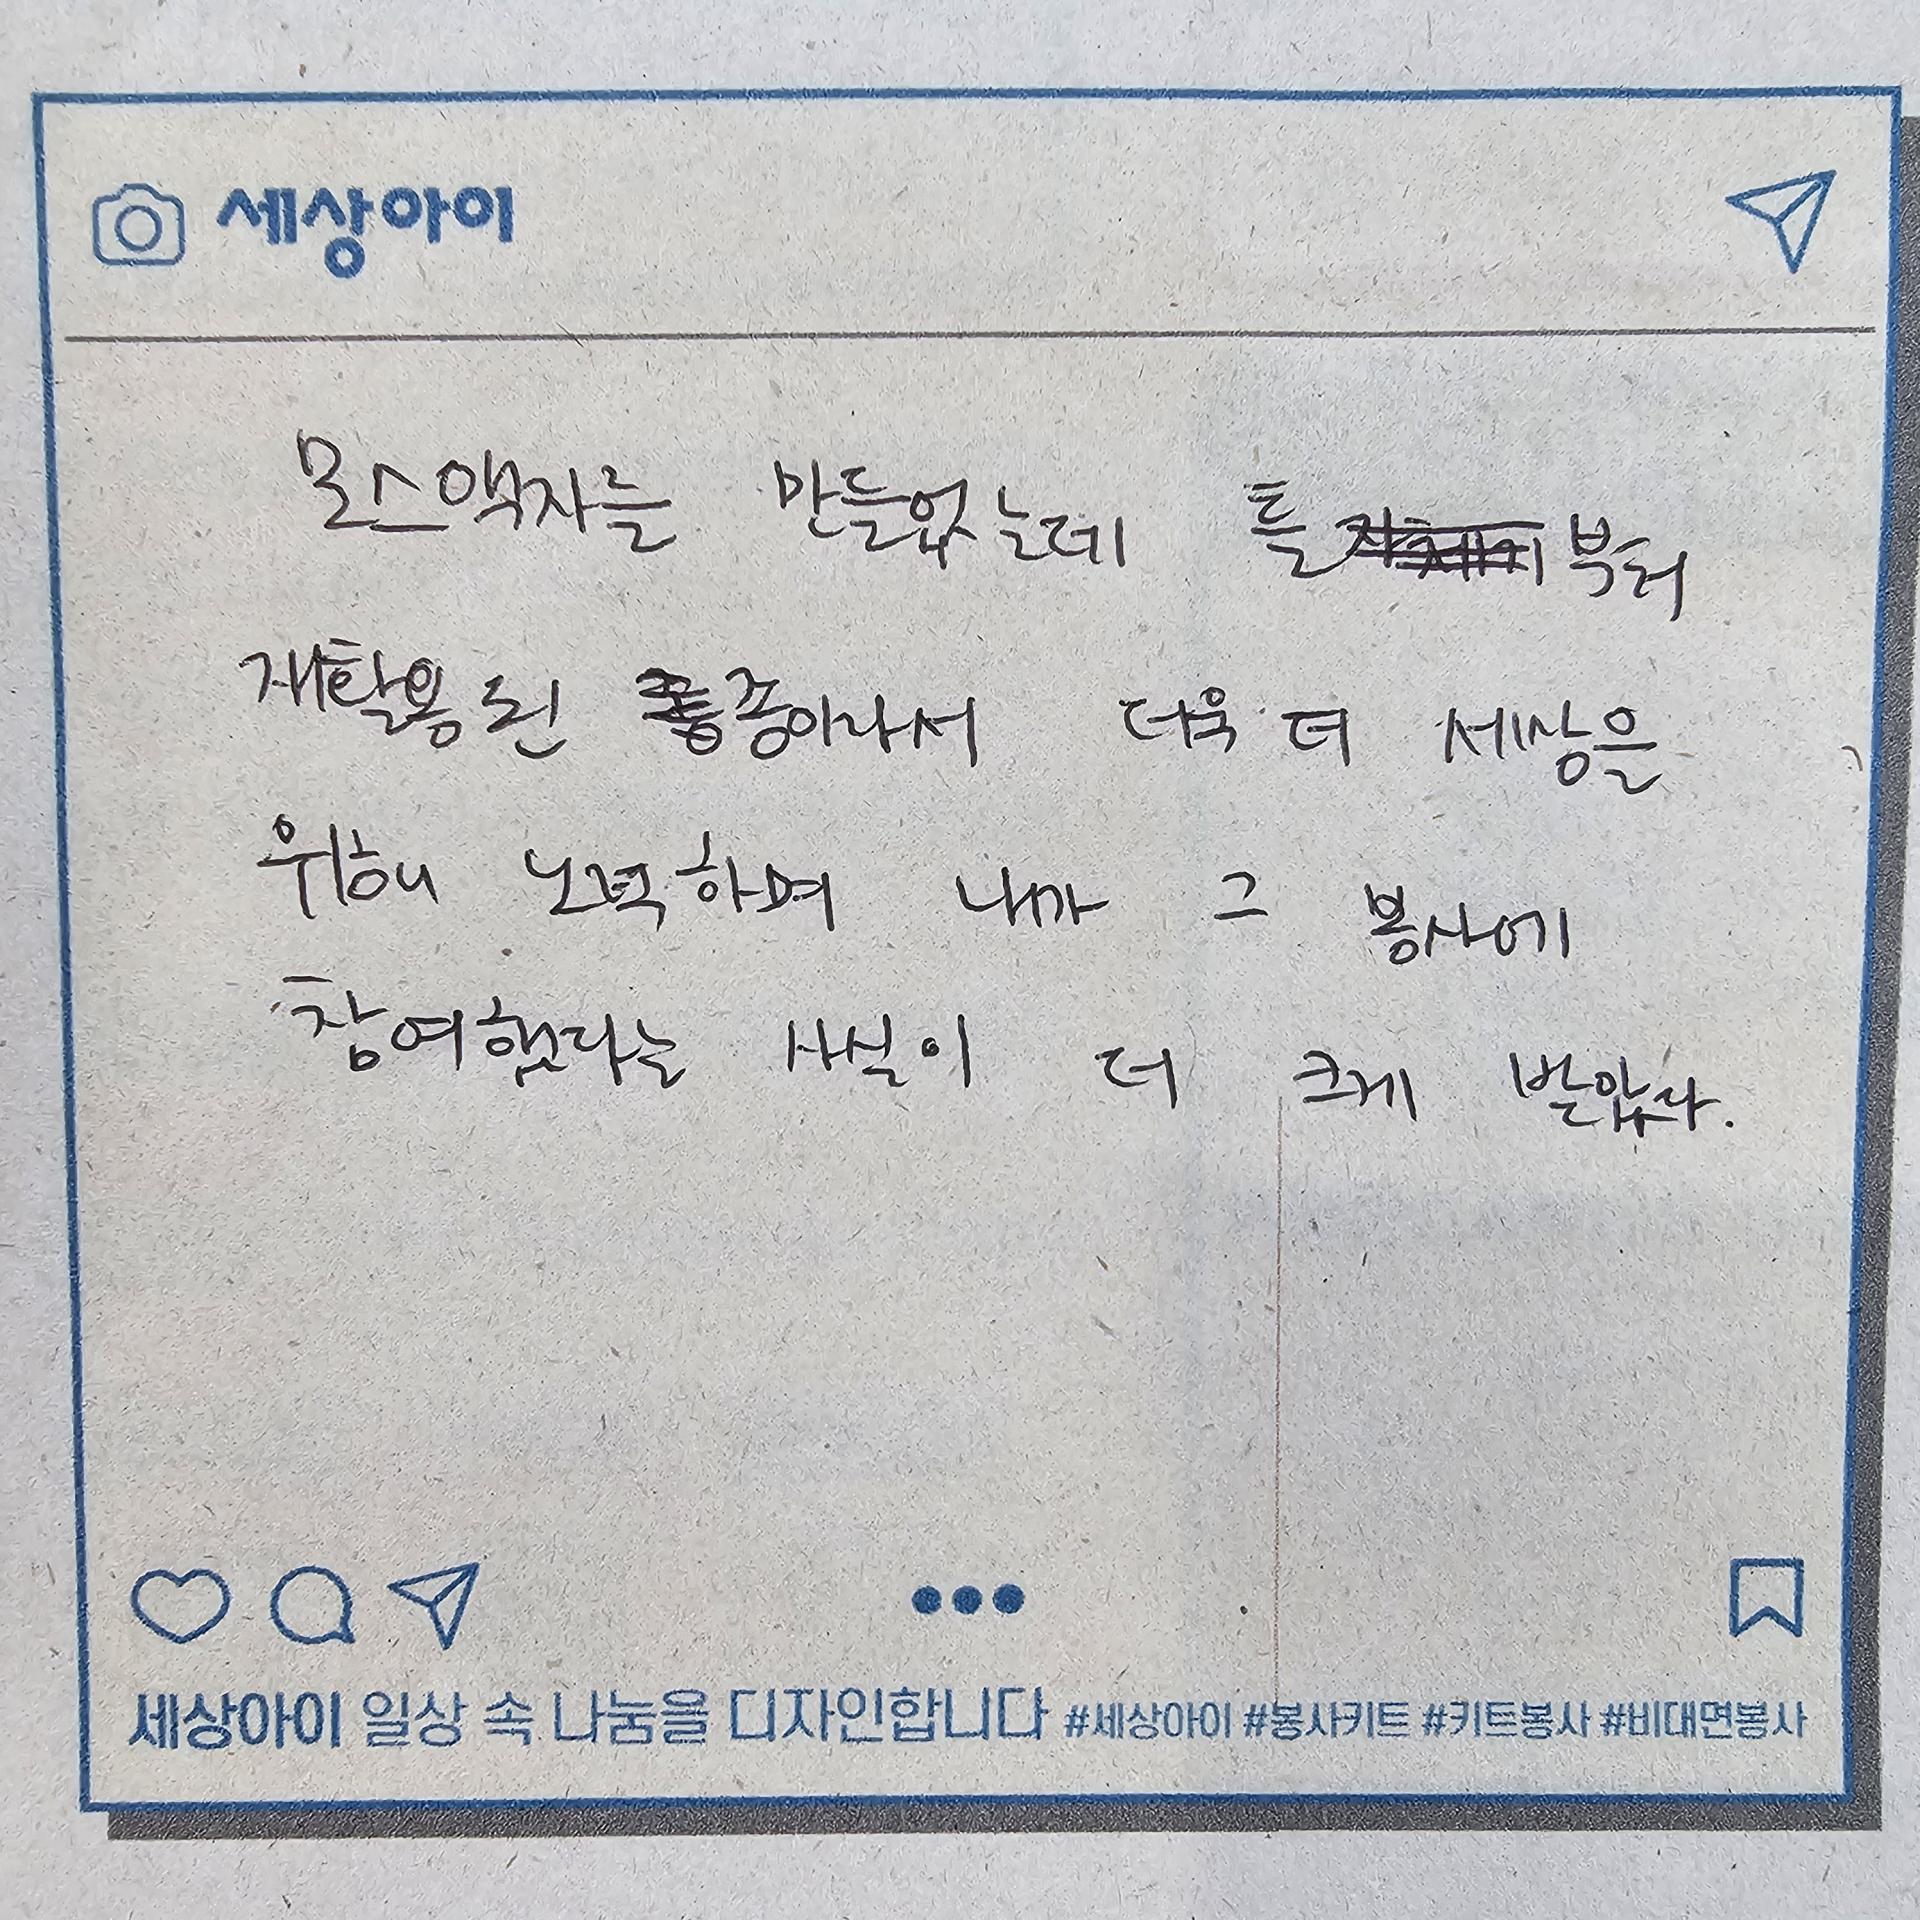 세상아이
모스액자를 만들었는데 틀 부터
재활용 된 종이라서 더욱 더 세상을
위해 노력하며 내가 그 봉사에
참여했다는 사실이 더 크게
세상아이 일상 속 나눔을 디자인합니다 #세상아이 #봉사키트 #키트봉사 #비대면봉사